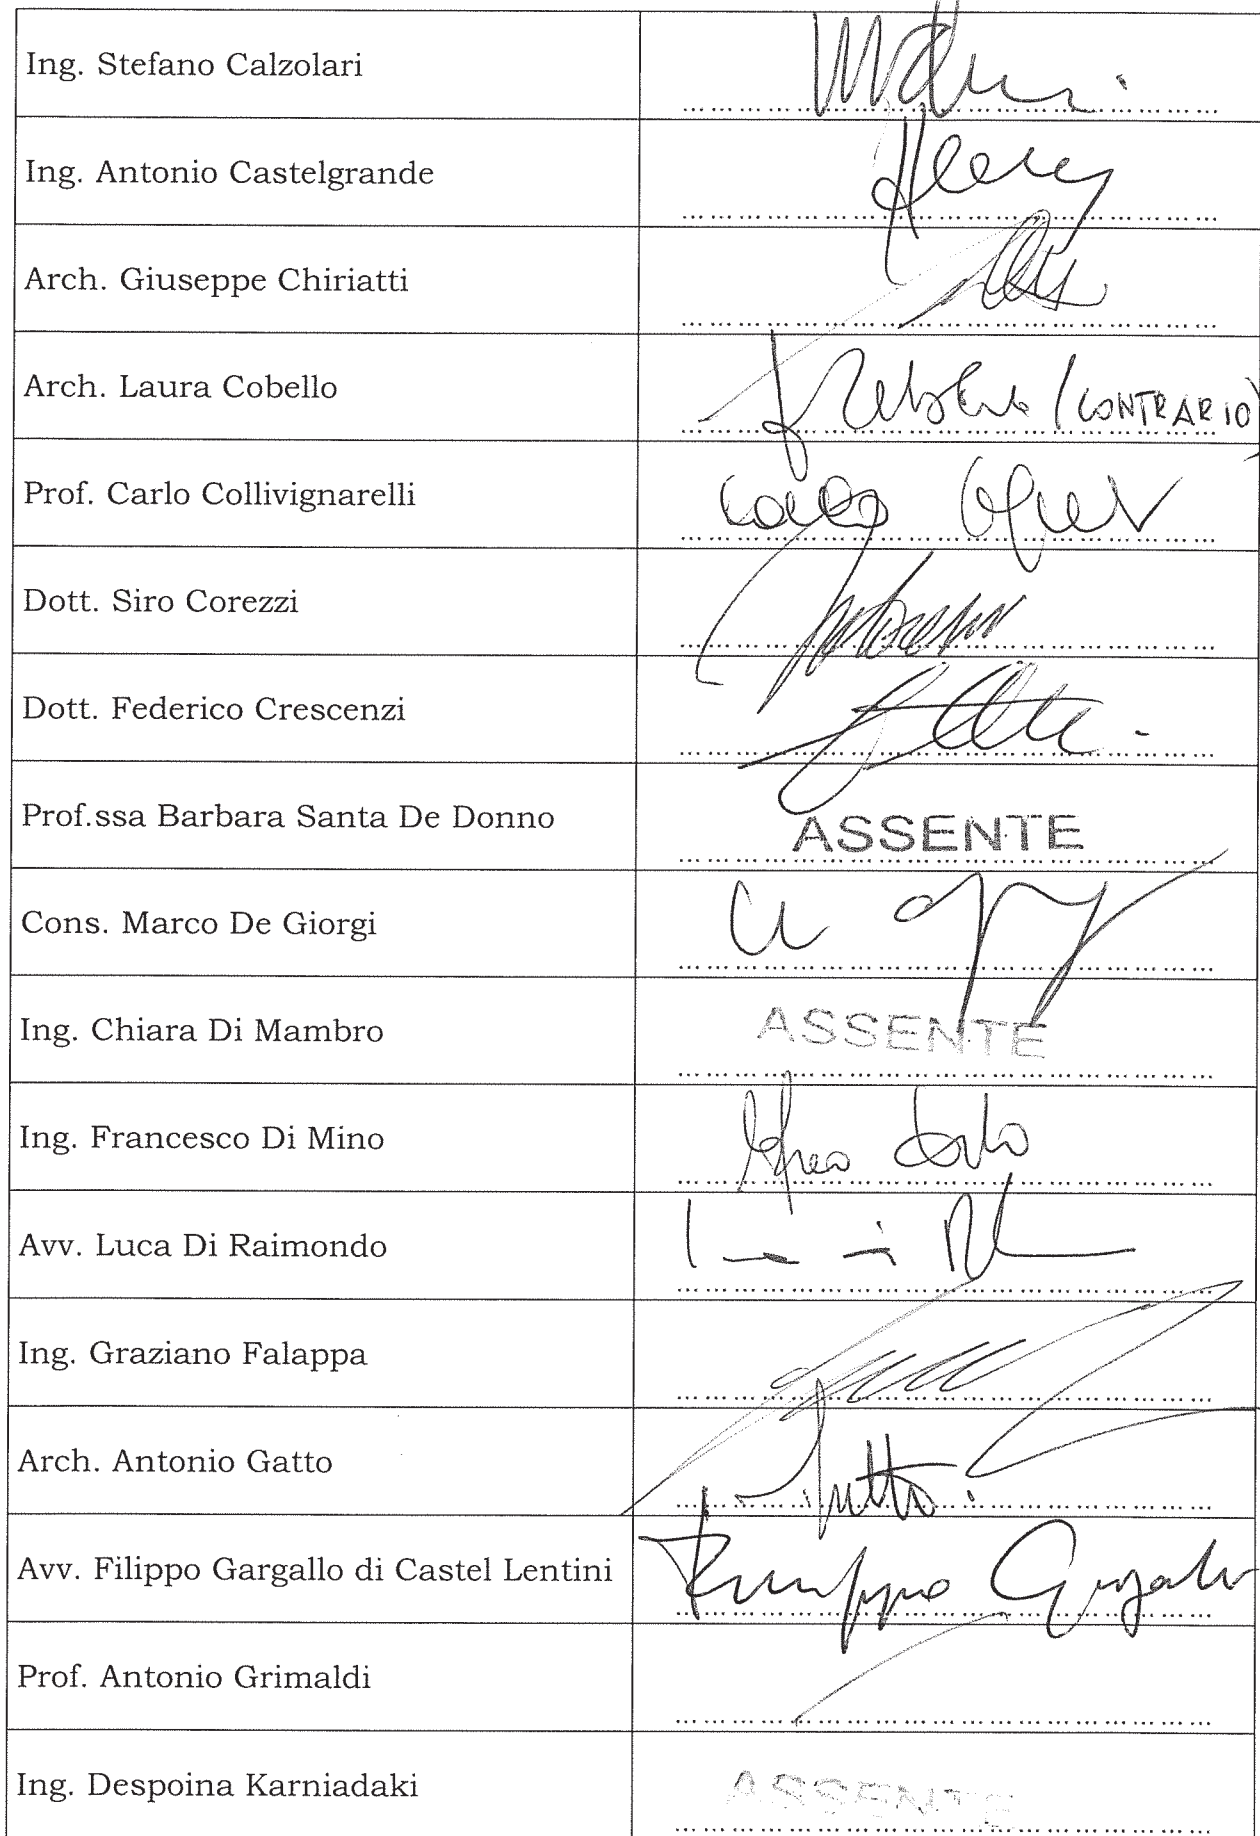 Ing. Stefano Calzolari
Ing. Antonio Castelgrande
Arch. Giuseppe Chiriatti
Arch. Laura Cobello
(CONTRARIO)
Prof. Carlo Collivignarelli
Dott. Siro Corezzi
Dott. Federico Crescenzi
Prof.ssa Barbara Santa De Donno
ASSENTE
Cons. Marco De Giorgi
Ing. Chiara Di Mambro
ASSENTE
Ing. Francesco Di Mino
Avv. Luca Di Raimondo
Ing. Graziano Falappa
Arch. Antonio Gatto
Avv. Filippo Gargallo di Castel Lentini
Prof. Antonio Grimaldi
Ing. Despoina Karniadaki
ASSENTE